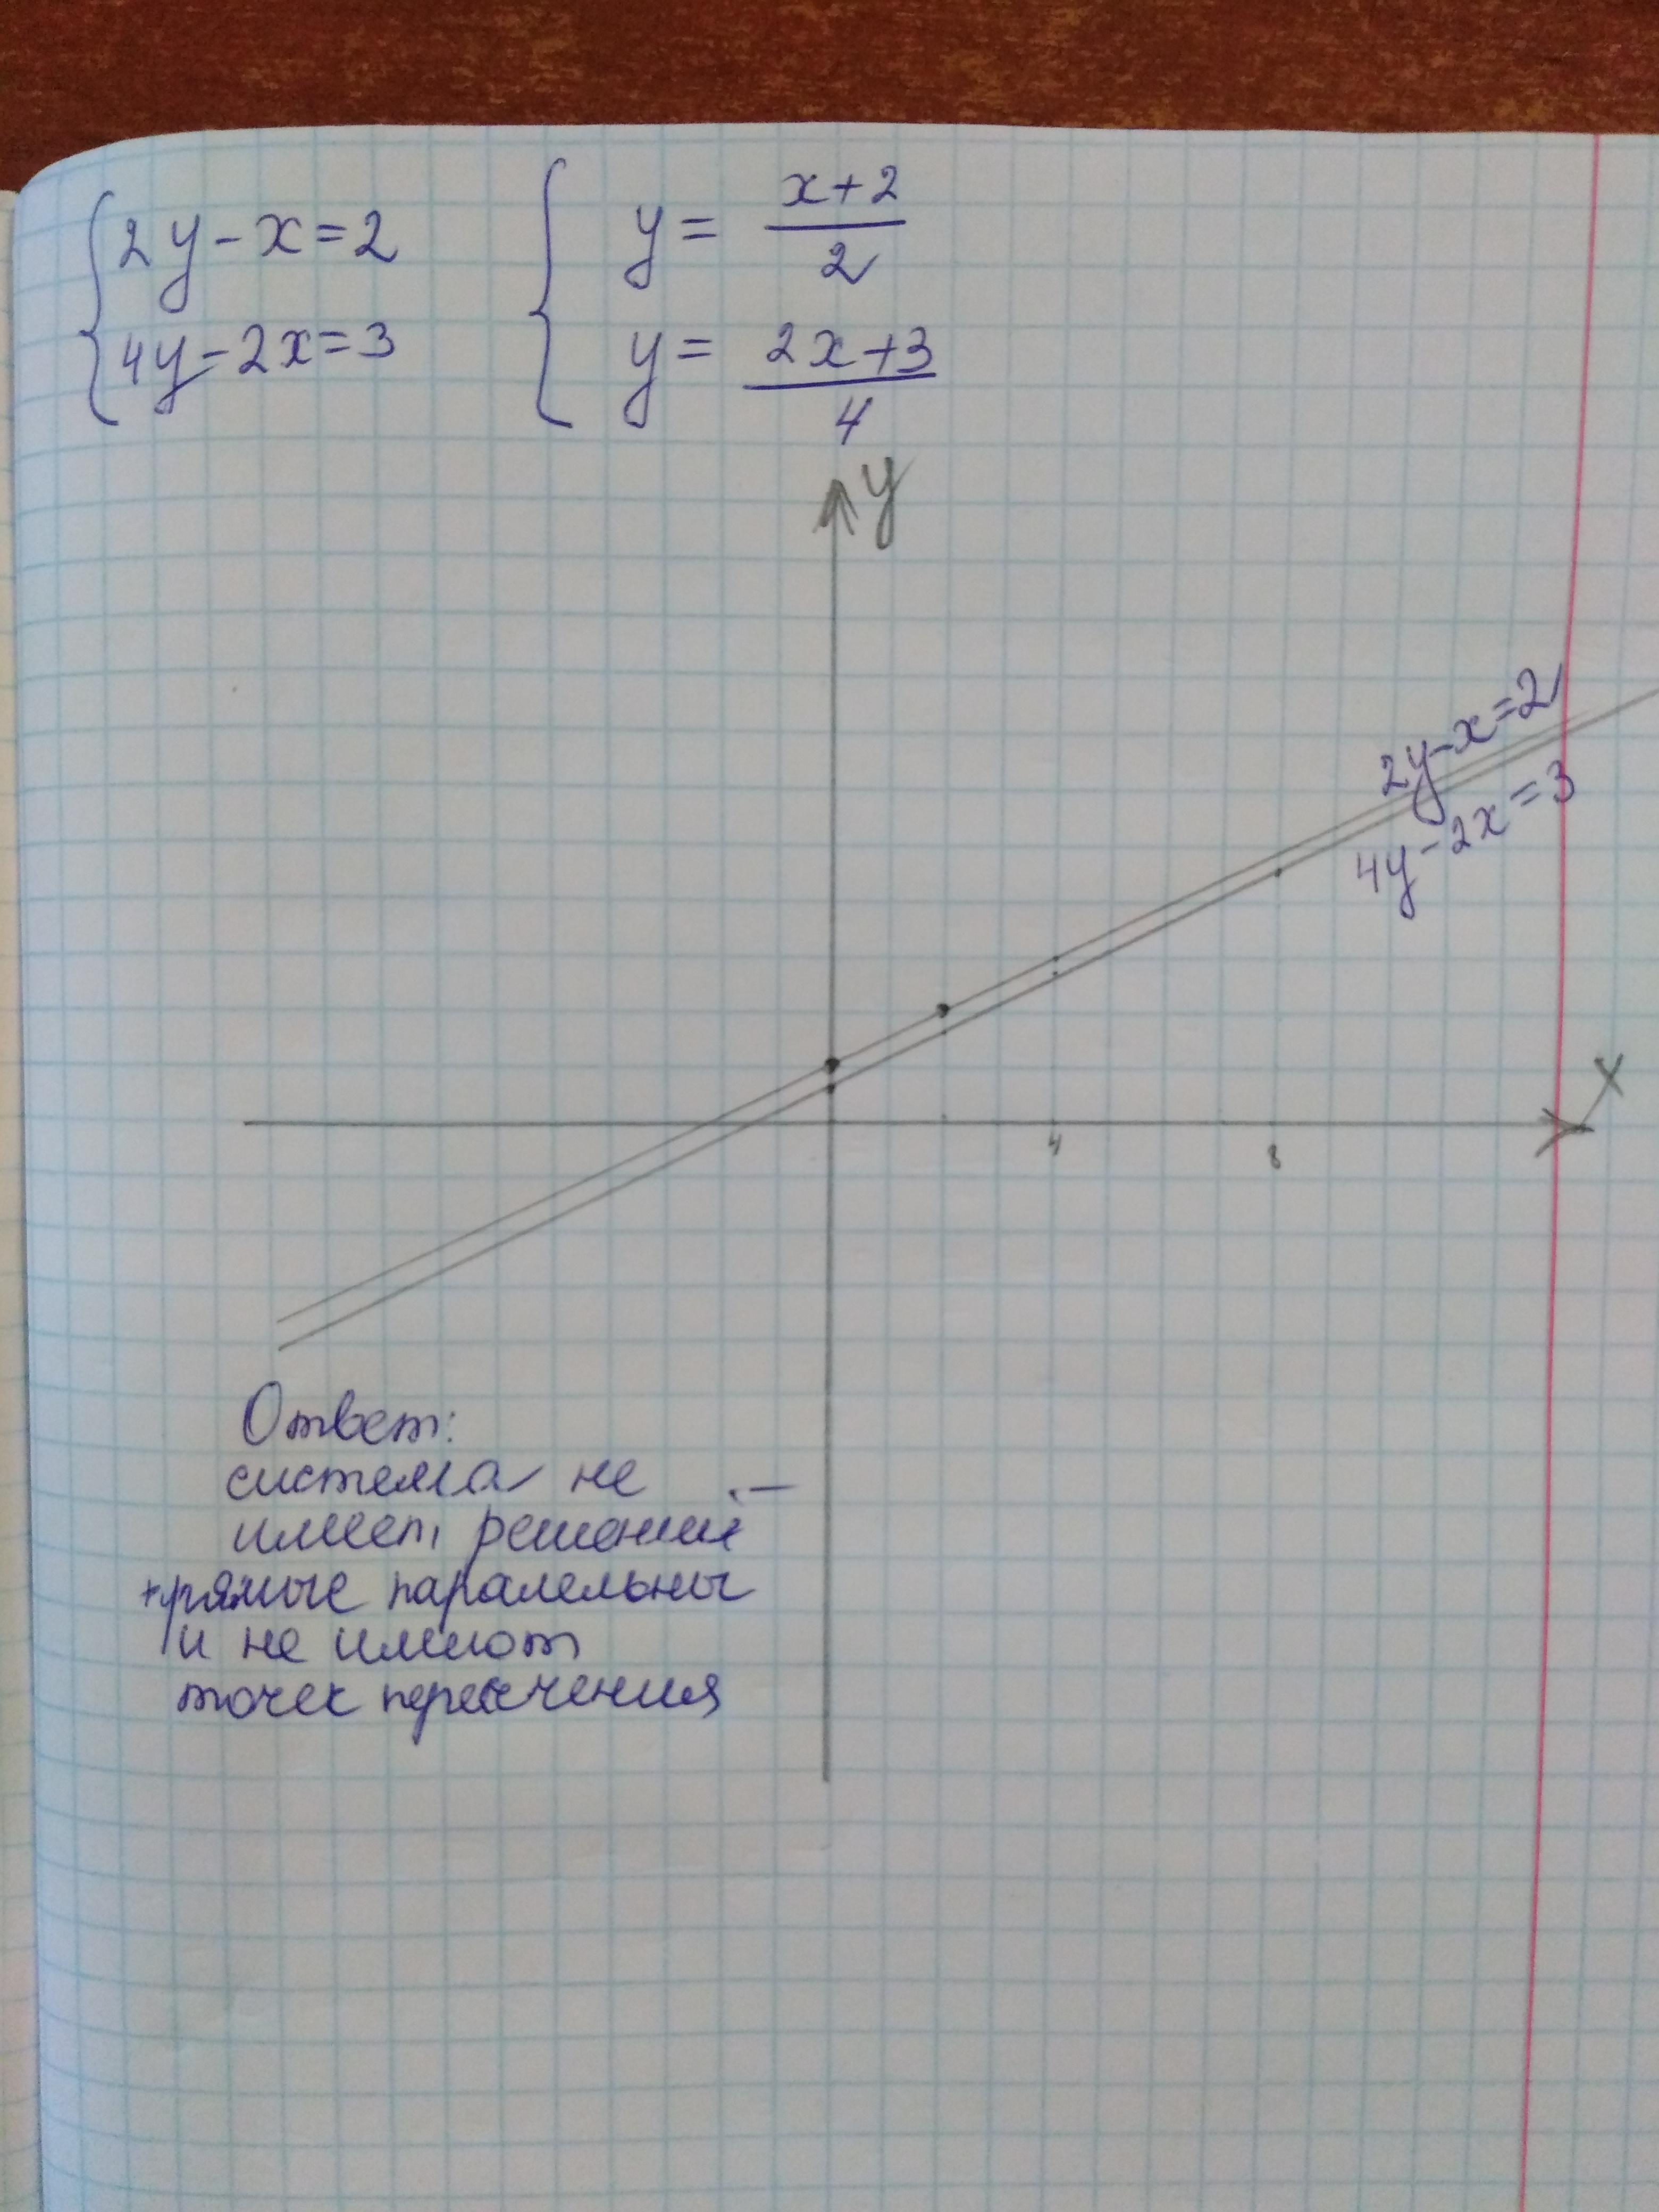 2y-x=2
4y-2x=3
y= x+2/2
y= 2x+3/4
y
2y-x=2
4y-2x=3
x
4 8
Ответ:
система не
имеет решений
прямые паралельны
и не имеют
точек пересечения